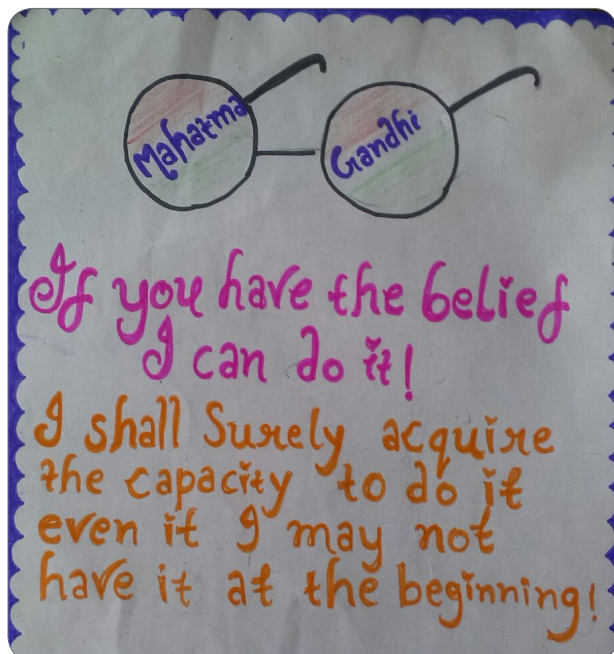 Mahatma Gandhi
If you have the belief
I can do it!
I shall Surely acquire
the capacity to do it
even it I may not
have it at the beginning!